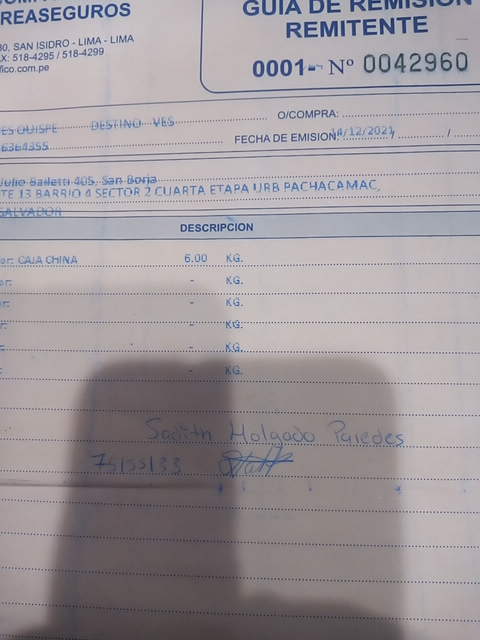 REASEGUROS
GUIA DE REMISION
REMITENTE
30, SAN ISIDRO - LIMA - LIMA
X: 518-4295 / 518-4299
fico.com.pe
0001- Nº 0042960
O/COMPRA:
ES QUISPE DESTINO VES
FECHA DE EMISION: 14/12/2021 / /
6364355
Julio Bailetti 405, San Borja
TE 13 BARRIO 4 SECTOR 2 CUARTA ETAPA URB PACHACAMAC,
SALVADOR
DESCRIPCION
or: CAJA CHINA 6.00 KG.
or: - KG.
or: - KG.
r: - KG.
r: - KG.
or: - KG.
Holgado Paredes